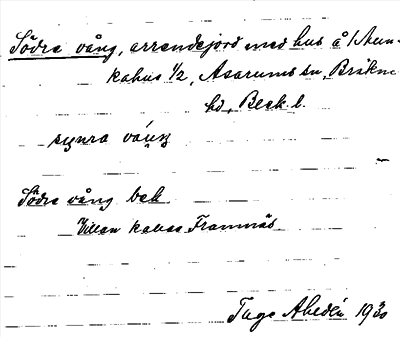 Södra vång, arrendejord med hus å 1 Mun-
kahus 1/2, Asarums sn, Bräkne
hd, Blek. l.
synra váŋ
Södra vång bek
Villan kallas Framnäs
Tage Ahldén 1930